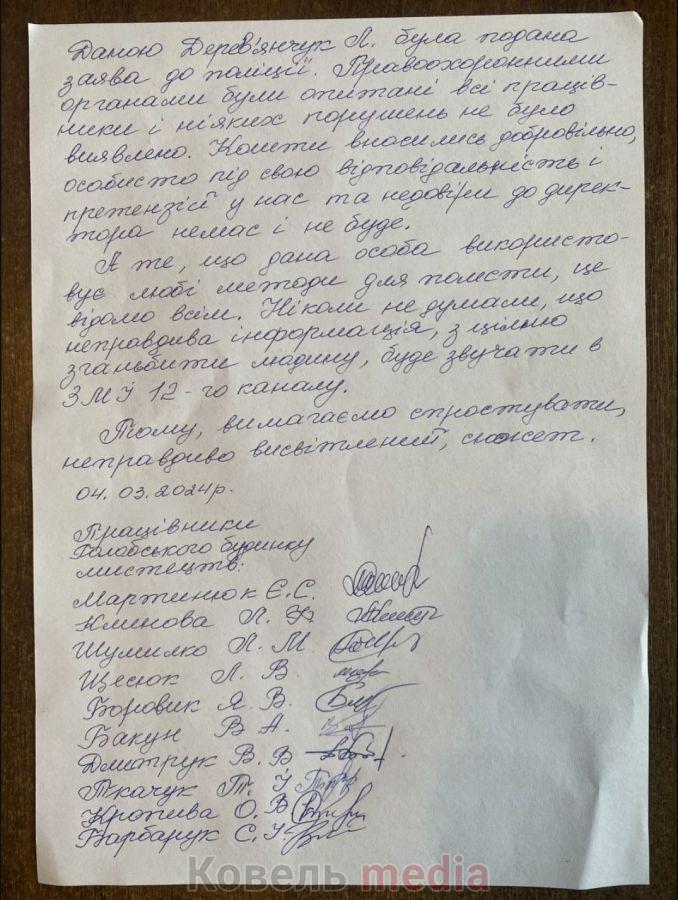 Даною Дерев'янчук Л. була подана
заява до поліції. Правоохоронними
органами були опитані всі праців-
ники і ніяких порушень не було
виявлено. Кошти вносились добровільно,
особисто під свою відповідальність і
претензій у нас та недовіри до дирек-
тора немає і не буде.
А те, що дана особа використо-
вує любі методи для помсти, це
відомо всім. Ніколи не думали, що
неправдива інформація, з ціллю
зганьбити людину, буде звучати в
ЗМІ 12-го каналу.
Тому, вимагаємо спростувати,
неправдиво висвітлений, сюжет.
04.03.2024р.
Працівники
Голобського будинку
мистецтв:
Мартинюк Є.С.
Климова Л.
Шумилко Л. М.
Щесюк Л. В
Боровик Я. В.
Бакун В А.
Дмитрук В. В
Ткачук Т. І
Кропива О. В
Барбарук С. І.
Ковель media